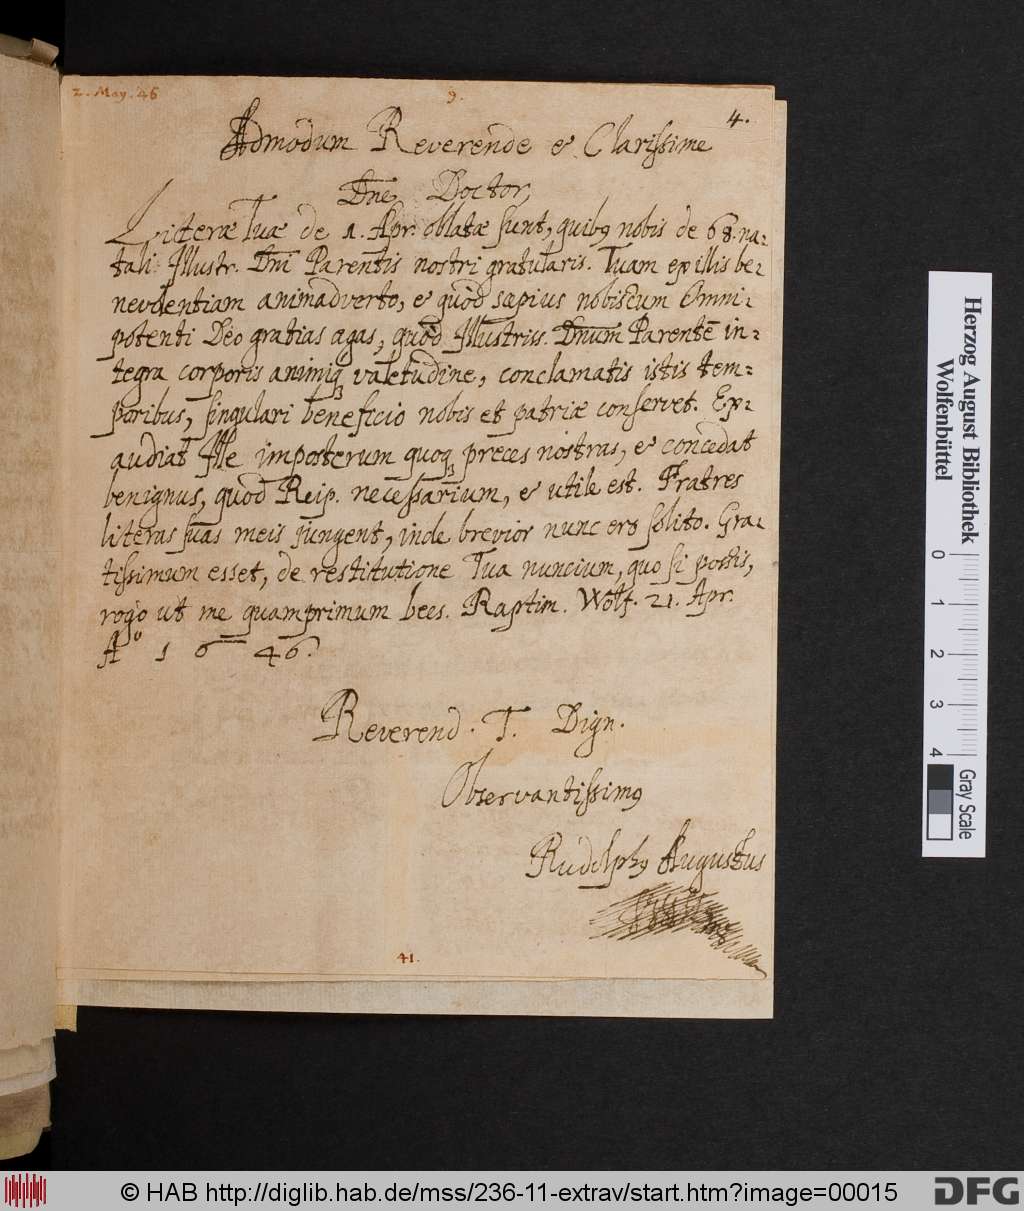 2. May. 46
9.
4.
Admodum Reverende & Clarissime
Dne Doctor,
Literæ Tuæ de 1. Apr. oblatæ sunt, quibꝰ nobis de 68. na-
tali Illustr. Dni Parentis nostri gratularis. Tuam ex illis be-
nevolentiam animadverto, & quòd sæpius nobiscum Omni-
potenti Deo gratias agas, quòd Illustriss. Dnum Parentē in-
tegra corporis animiqꝫ valetudine, conclamatis istis tem-
poribus, singulari beneficio nobis et patriæ conservet. Ex-
audiat Ille imposterum quoqꝫ preces nostras, & concedat
benignus, quod Reip. necessarium, & utile est. Fratres
literas suas meis jungent, inde brevior nunc ero solito. Gra-
tissimum esset, de restitutione Tua nuncium, quo si potis,
rogo ut me quamprimum bees. Raptim. Wolf. 21. Apr.
Aº 1646.
Reverend. T. Dign.
Observantissimꝰ
Rudolphꝰ Augustus
41.
Herzog August Bibliothek
Wolfenbüttel
0 1 2 3 4
Gray Scale
© HAB http://diglib.hab.de/mss/236-11-extrav/start.htm?image=00015
DFG